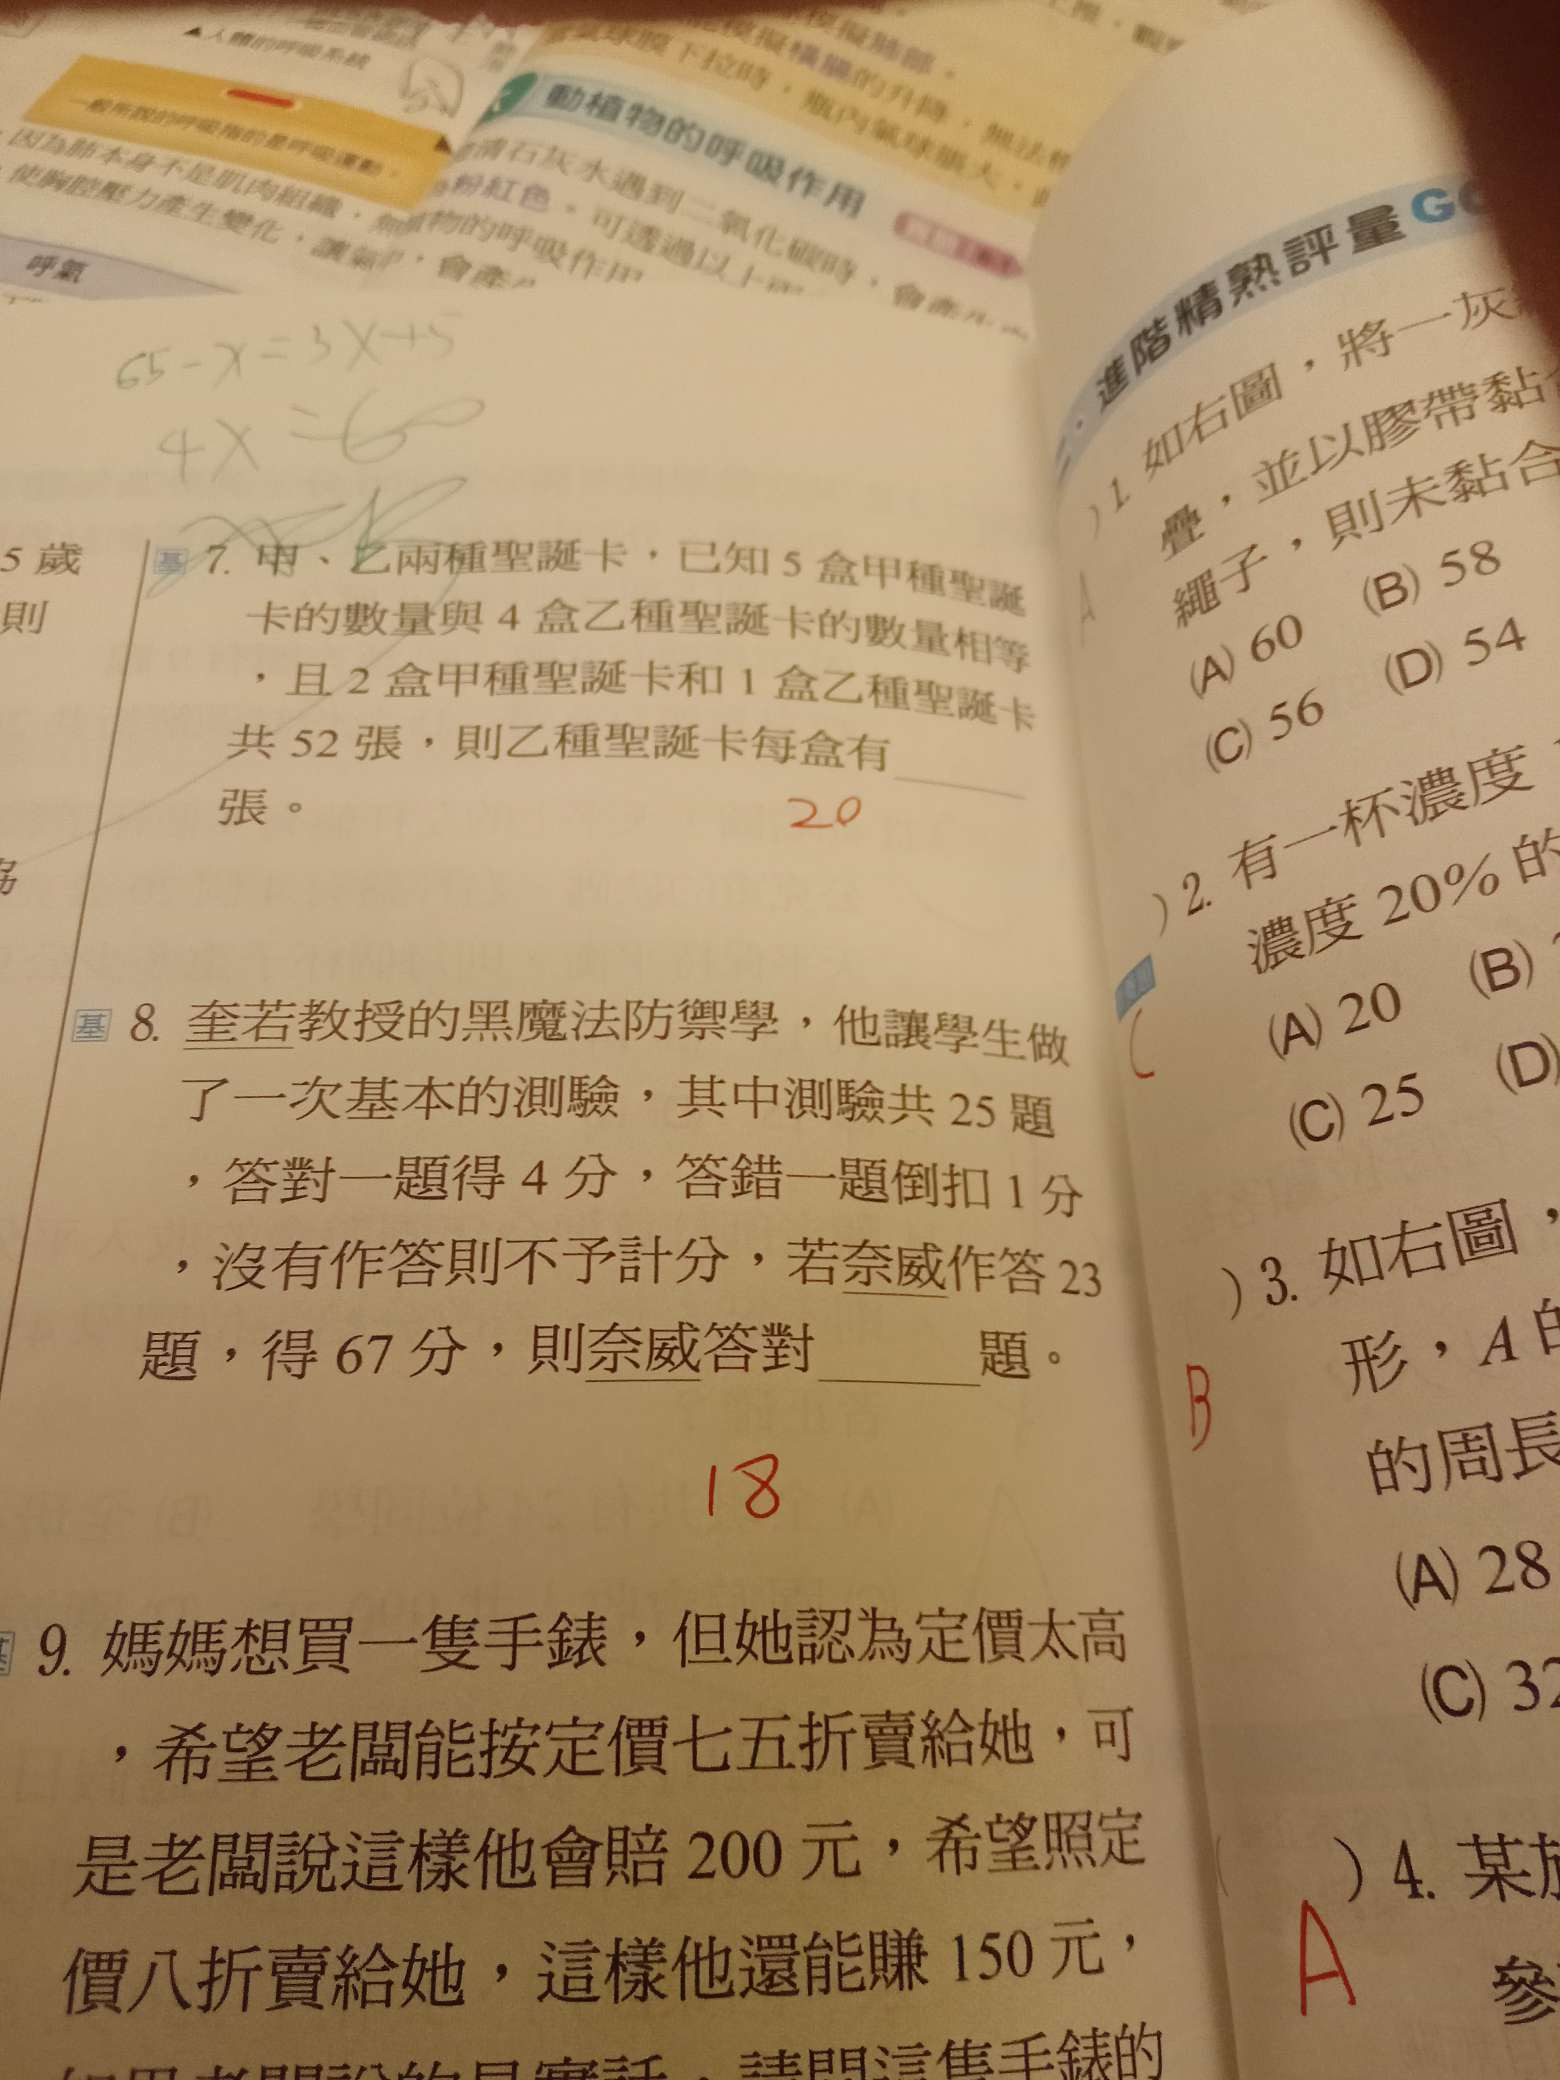 ▲人體的呼吸系統
一般所說的呼吸指的是呼吸運動，
因為肺本身不是肌肉組織，無
使胸腔壓力產生變化，讓氣
呼氣
模擬肺部。
模擬橫膈的升降，無法
氣球膜下拉時，瓶內氣球脹大，
動植物的呼吸作用
清石灰水遇到二氧化碳時，會產
粉紅色，可透過以上
植物的呼吸作用
，會產
65-x=3x+5
4x=60
5 歲
則
基 7. 甲、乙兩種聖誕卡，已知 5 盒甲種聖誕
卡的數量與 4 盒乙種聖誕卡的數量相等
，且 2 盒甲種聖誕卡和 1 盒乙種聖誕卡
共 52 張，則乙種聖誕卡每盒有
張。
20
基 8. 奎若教授的黑魔法防禦學，他讓學生做
了一次基本的測驗，其中測驗共 25 題
，答對一題得 4 分，答錯一題倒扣 1 分
，沒有作答則不予計分，若奈威作答 23
題，得 67 分，則奈威答對　　題。
18
基 9. 媽媽想買一隻手錶，但她認為定價太高
，希望老闆能按定價七五折賣給她，可
是老闆說這樣他會賠 200 元，希望照定
價八折賣給她，這樣他還能賺 150 元，
如果老闆說的是實話，請問這隻手錶的
進階精熟評量 GO
) 1. 如右圖，將一灰
疊，並以膠帶黏合
繩子，則未黏合
(A) 60 (B) 58
(C) 56 (D) 54
A
) 2. 有一杯濃度
濃度 20% 的
(A) 20 (B)
(C) 25 (D)
C
) 3. 如右圖，
形，A 的
的周長
(A) 28
(C) 32
B
) 4. 某
參
A